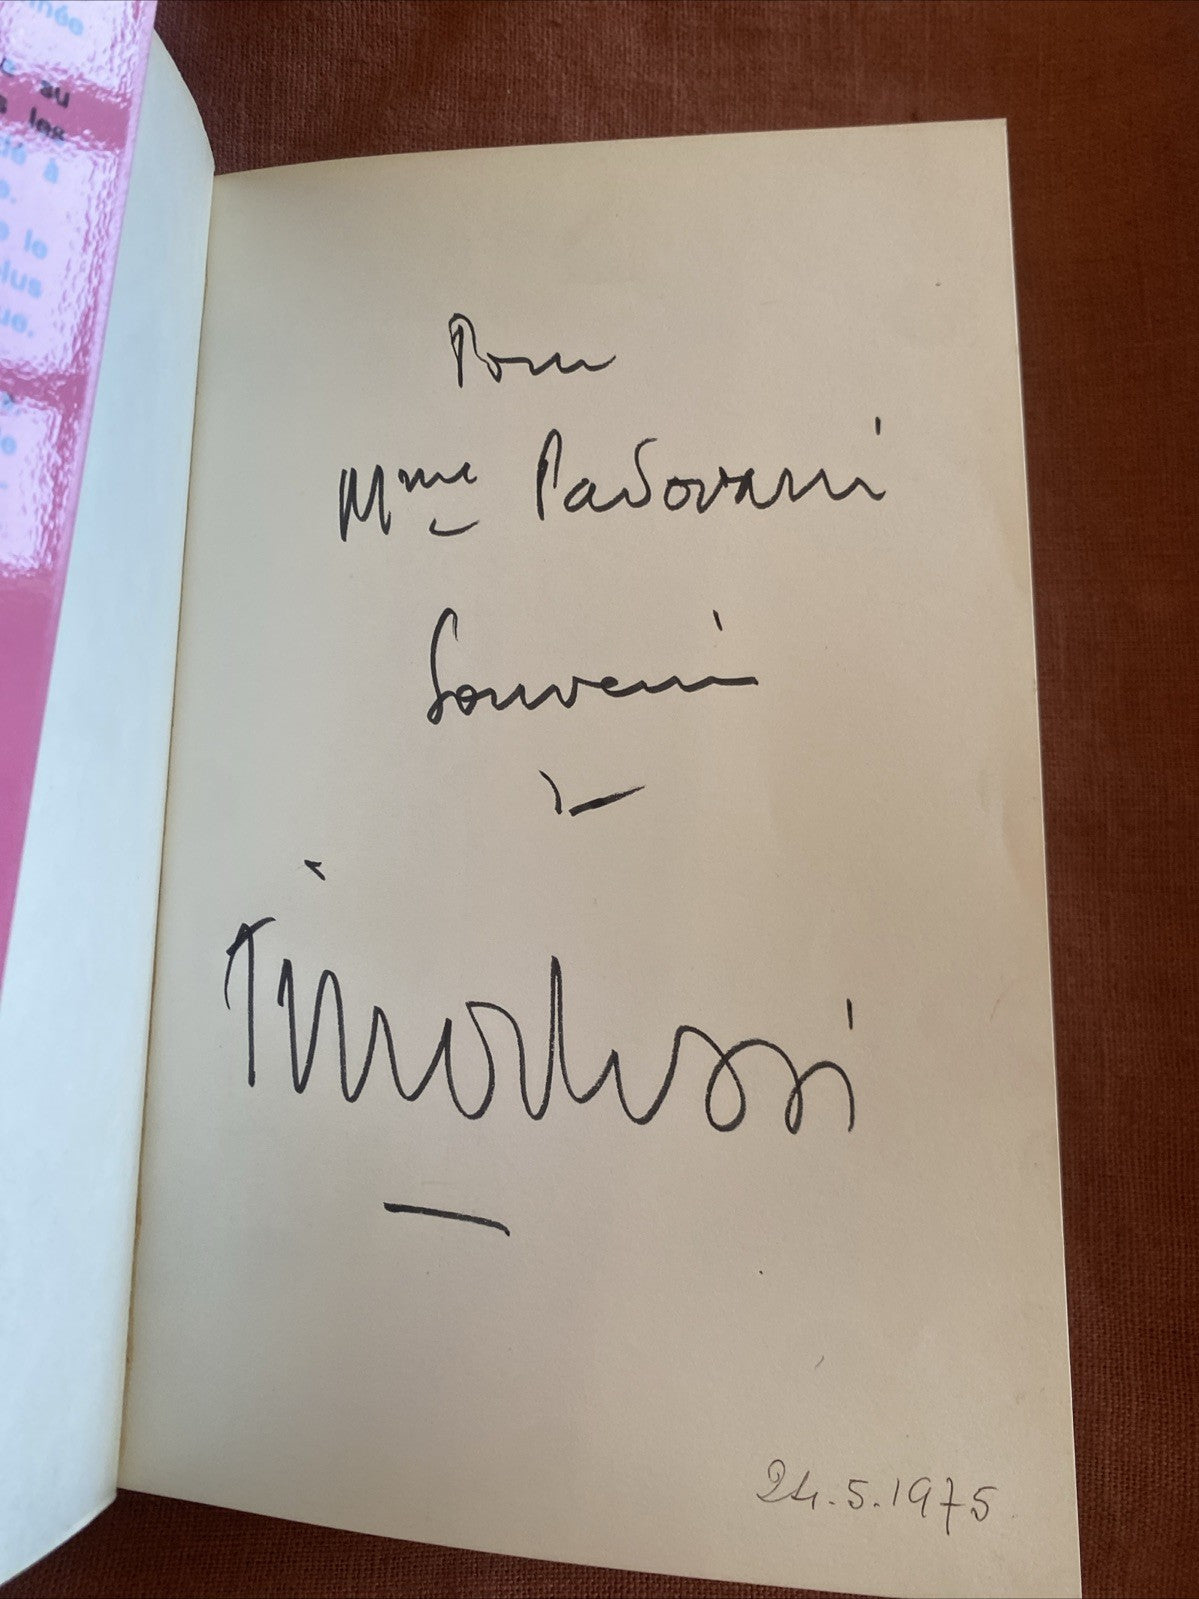 au
les
à
le
plus
Pour
Mme Padovani
Souvenir
Tino Rossi
24.5.1975